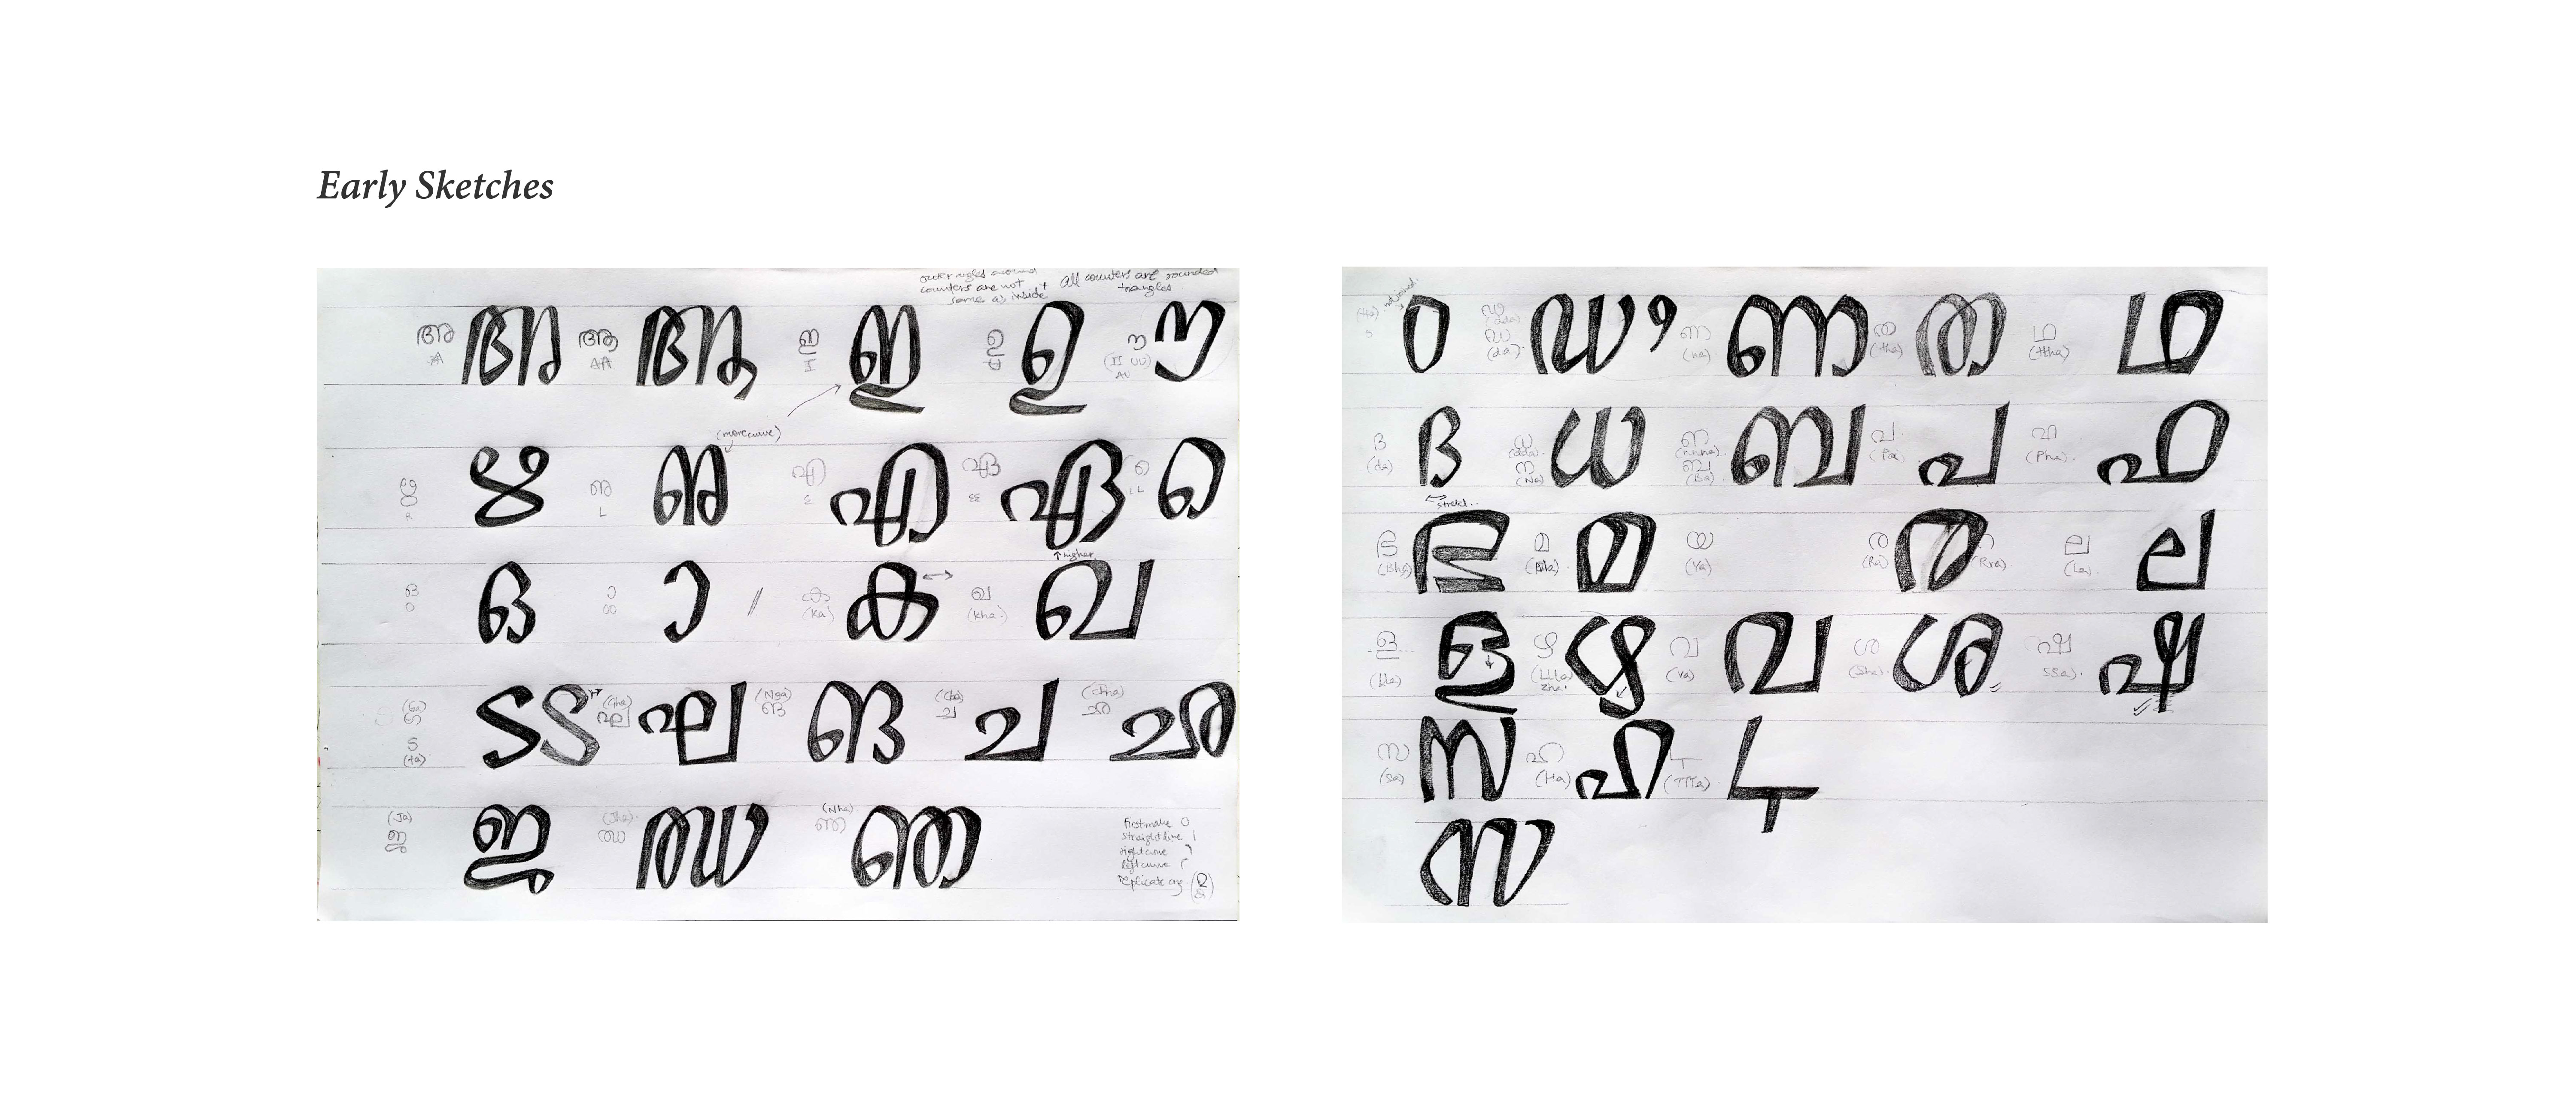 Early Sketches
counters are not + All counters are rounded
same as inside triangles
അ അ ആ ആ ഇ ഇ ഉ ഉ ൗ ൗ
A AA I (II UU)
AU
(more curve)
ഋ ഋ ഌ എ എ ഏ ഏ െ െ
R L E EE
↑ higher
ഒ ഒ ാ ാ / ക ക ↔ ഖ ഖ
O OO (Ka) (kha)
(Ga) ട ട (Gha) ഘ ഘ (Nga) ങ ങ (Cha) ച ച ഛ ഛ
ട
(ta)
(Ja) (Jha) (Nha)
ജ ജ ഝ ഝ ഞ ഞ
First make O
straight line |
right curve )
left curve (
replicate
ഠ ഡ ണ ണ ത ത ഥ ഥ
(dda) (da) (na) (tha) (ttha)
ദ ദ ധ ധ ബ ബ പ പ ഫ ഫ
(da) (dda) (Na) (Ba) (Pa) (Pha)
stretch...
ഭ ഭ മ മ യ ര ര റ ല ല
(Bha) (Ma) (Ya) (Ra) (Rra) (La)
ള ള ഴ ഴ വ വ ശ ശ ഷ ഷ
(Lla) (LLLa) zha (va) (Sha) SSa)
സ സ ഹ ഹ
(Sa) (Ha) (TTTa)
സ